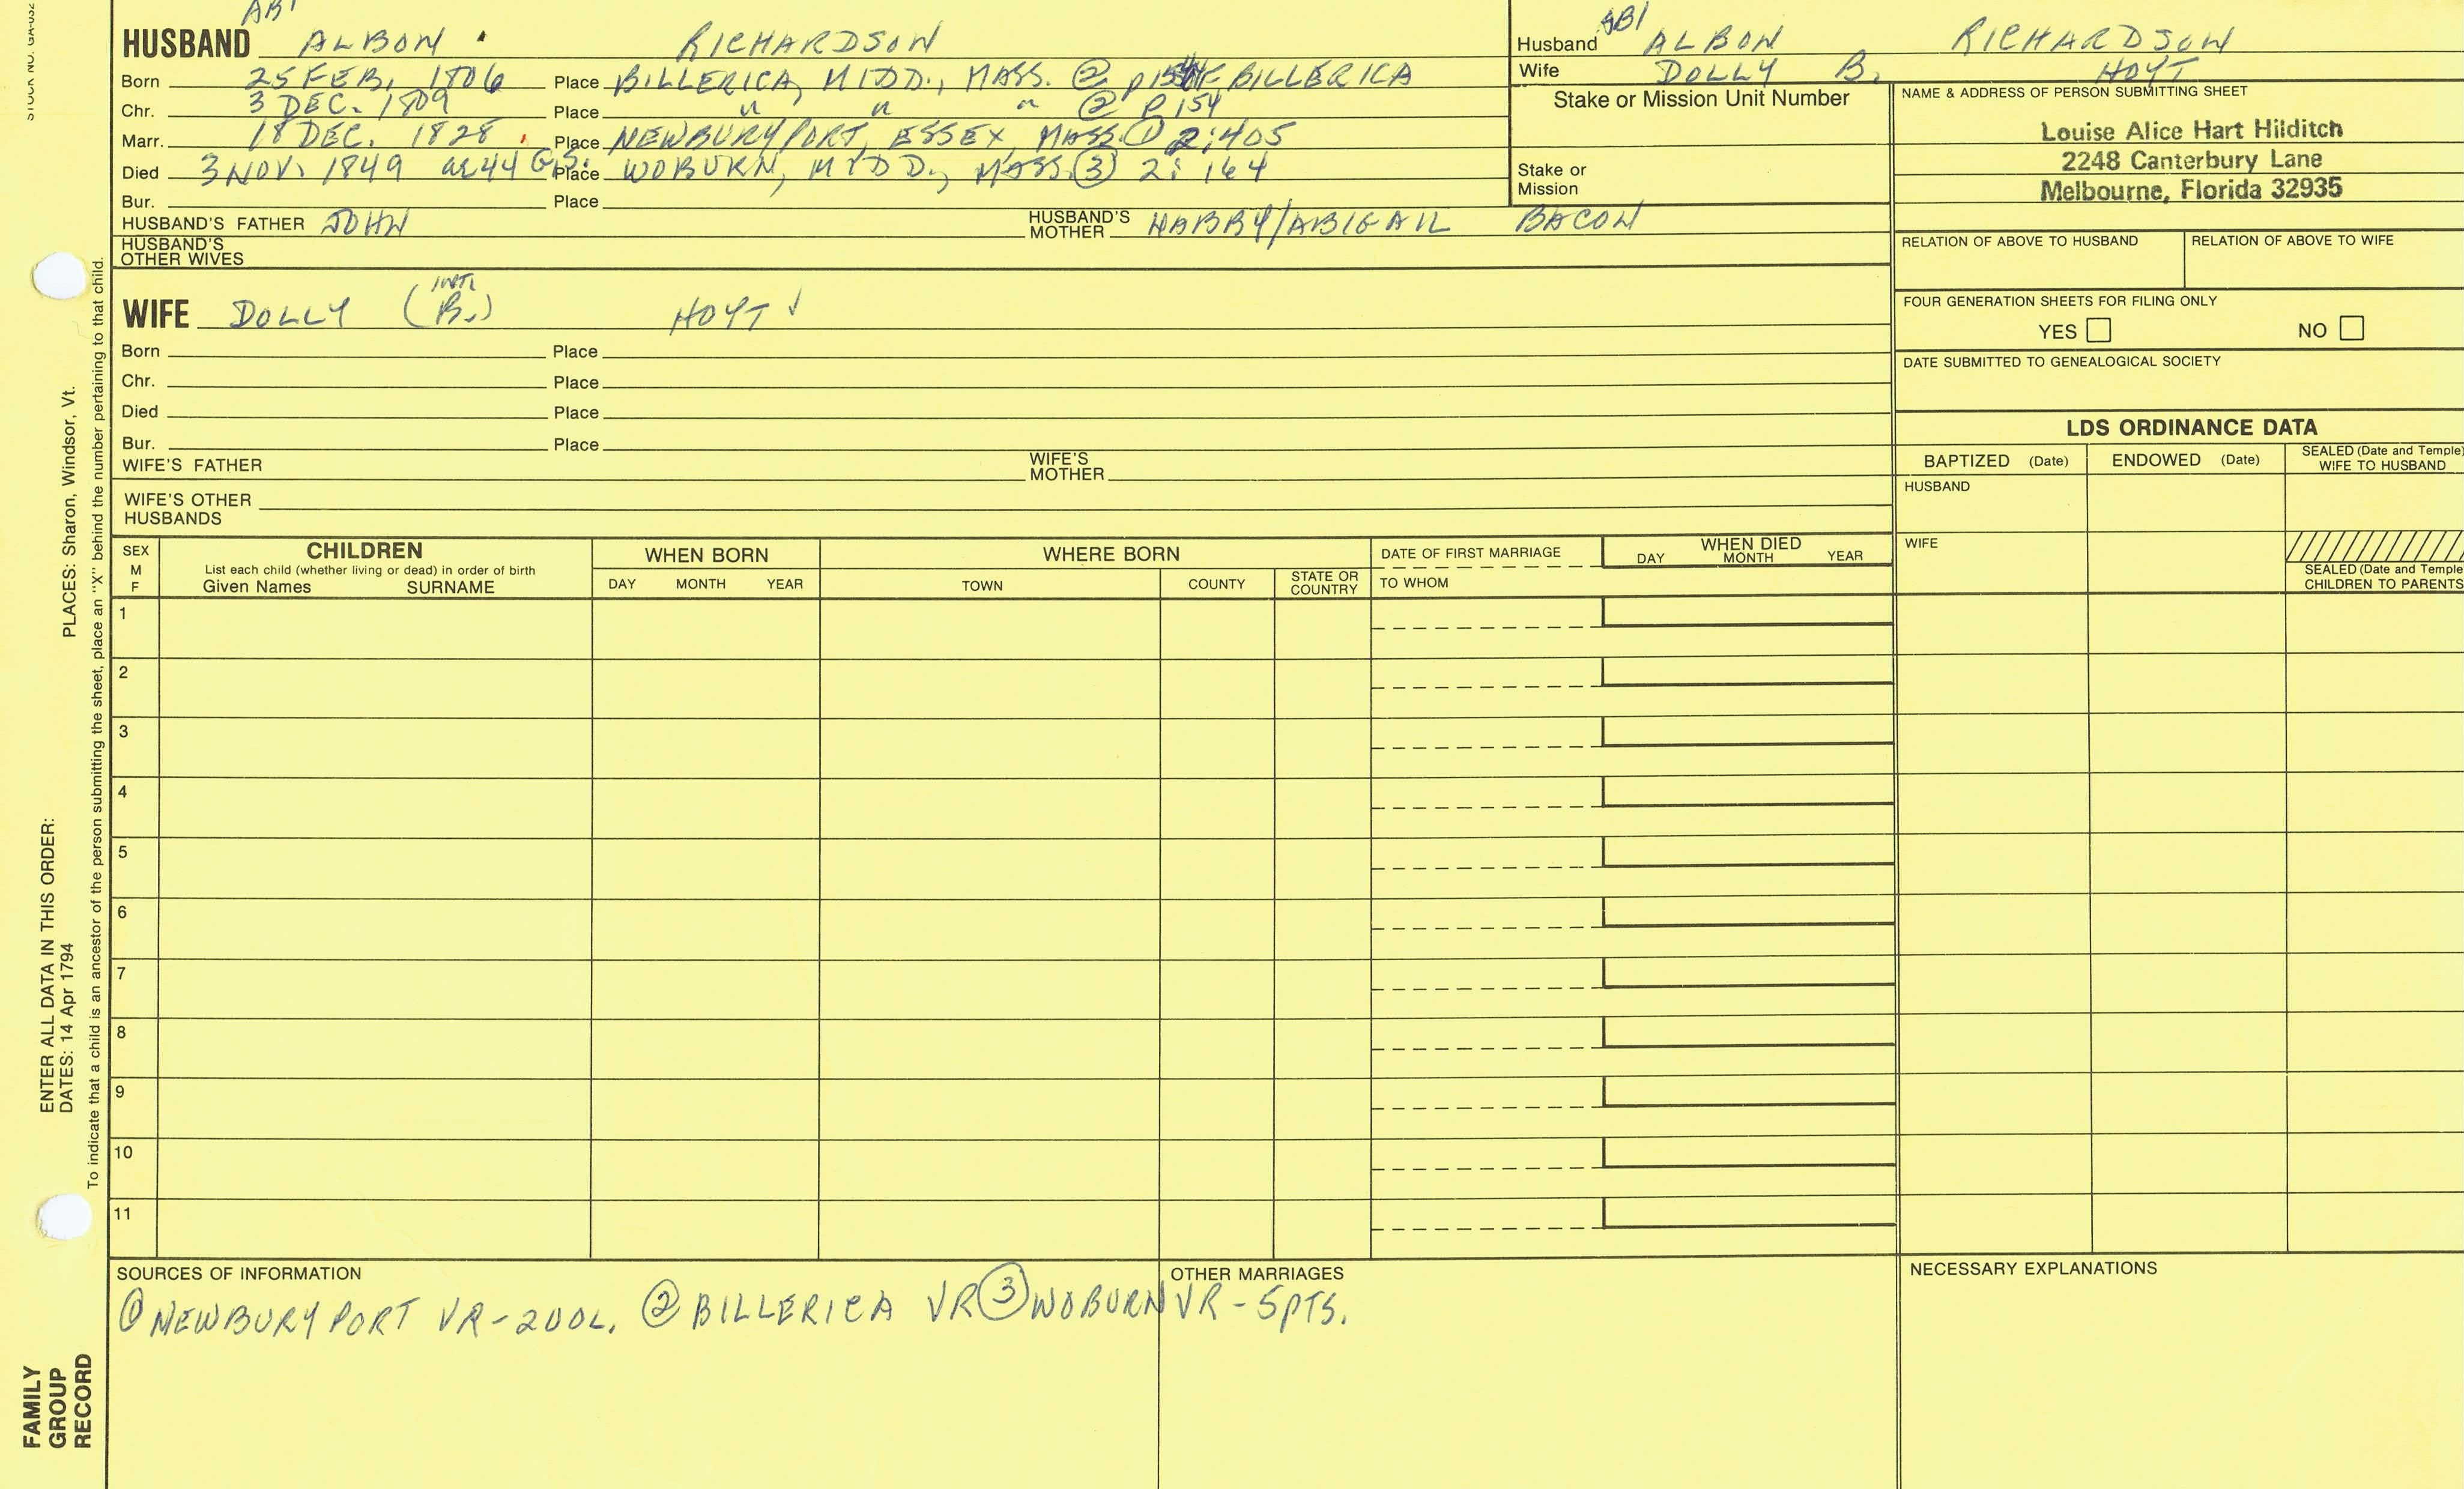 HUSBAND ALBON RICHARDSON
Born 25 FEB, 1806 Place BILLERICA, MIDD., MASS. ② BILLERICA
Chr. 3 DEC. 1809 Place " " " ② P154
Marr. 18 DEC. 1828 Place NEWBURYPORT, ESSEX, MASS. ① 2:405
Died 3 NOV. 1849 ae 44 G.S. Place WOBURN, MIDD., MASS ③ 2: 164
Bur. Place
HUSBAND'S FATHER JOHN HUSBAND'S MOTHER NABBY/ABIGAIL BACON
HUSBAND'S OTHER WIVES
INT.
WIFE DOLLY (B.) HOYT ✓
Born Place
Chr. Place
Died Place
Bur. Place
WIFE'S FATHER WIFE'S MOTHER
WIFE'S OTHER HUSBANDS
Husband ALBON RICHARDSON
Wife DOLLY B. HOYT
Stake or Mission Unit Number
Stake or Mission
NAME & ADDRESS OF PERSON SUBMITTING SHEET
Louise Alice Hart Hilditch
2248 Canterbury Lane
Melbourne, Florida 32935
RELATION OF ABOVE TO HUSBAND RELATION OF ABOVE TO WIFE
FOUR GENERATION SHEETS FOR FILING ONLY
YES NO
DATE SUBMITTED TO GENEALOGICAL SOCIETY
LDS ORDINANCE DATA
BAPTIZED (Date) ENDOWED (Date) SEALED (Date and Temple) WIFE TO HUSBAND
HUSBAND
WIFE
SEALED (Date and Temple
CHILDREN TO PARENTS
SEX M F
CHILDREN
List each child (whether living or dead) in order of birth
Given Names SURNAME
WHEN BORN
DAY MONTH YEAR
WHERE BORN
TOWN COUNTY STATE OR COUNTRY
DATE OF FIRST MARRIAGE
TO WHOM
WHEN DIED
DAY MONTH YEAR
1
2
3
4
5
6
7
8
9
10
11
SOURCES OF INFORMATION
① NEWBURYPORT VR-2VOL. ② BILLERICA VR ③ WOBURN VR - 5PTS.
OTHER MARRIAGES
NECESSARY EXPLANATIONS
PLACES: Sharon, Windsor, Vt.
ENTER ALL DATA IN THIS ORDER:
DATES: 14 Apr 1794
To indicate that a child is an ancestor of the person submitting the sheet, place an "X" behind the number pertaining to that child.
FAMILY
GROUP
RECORD